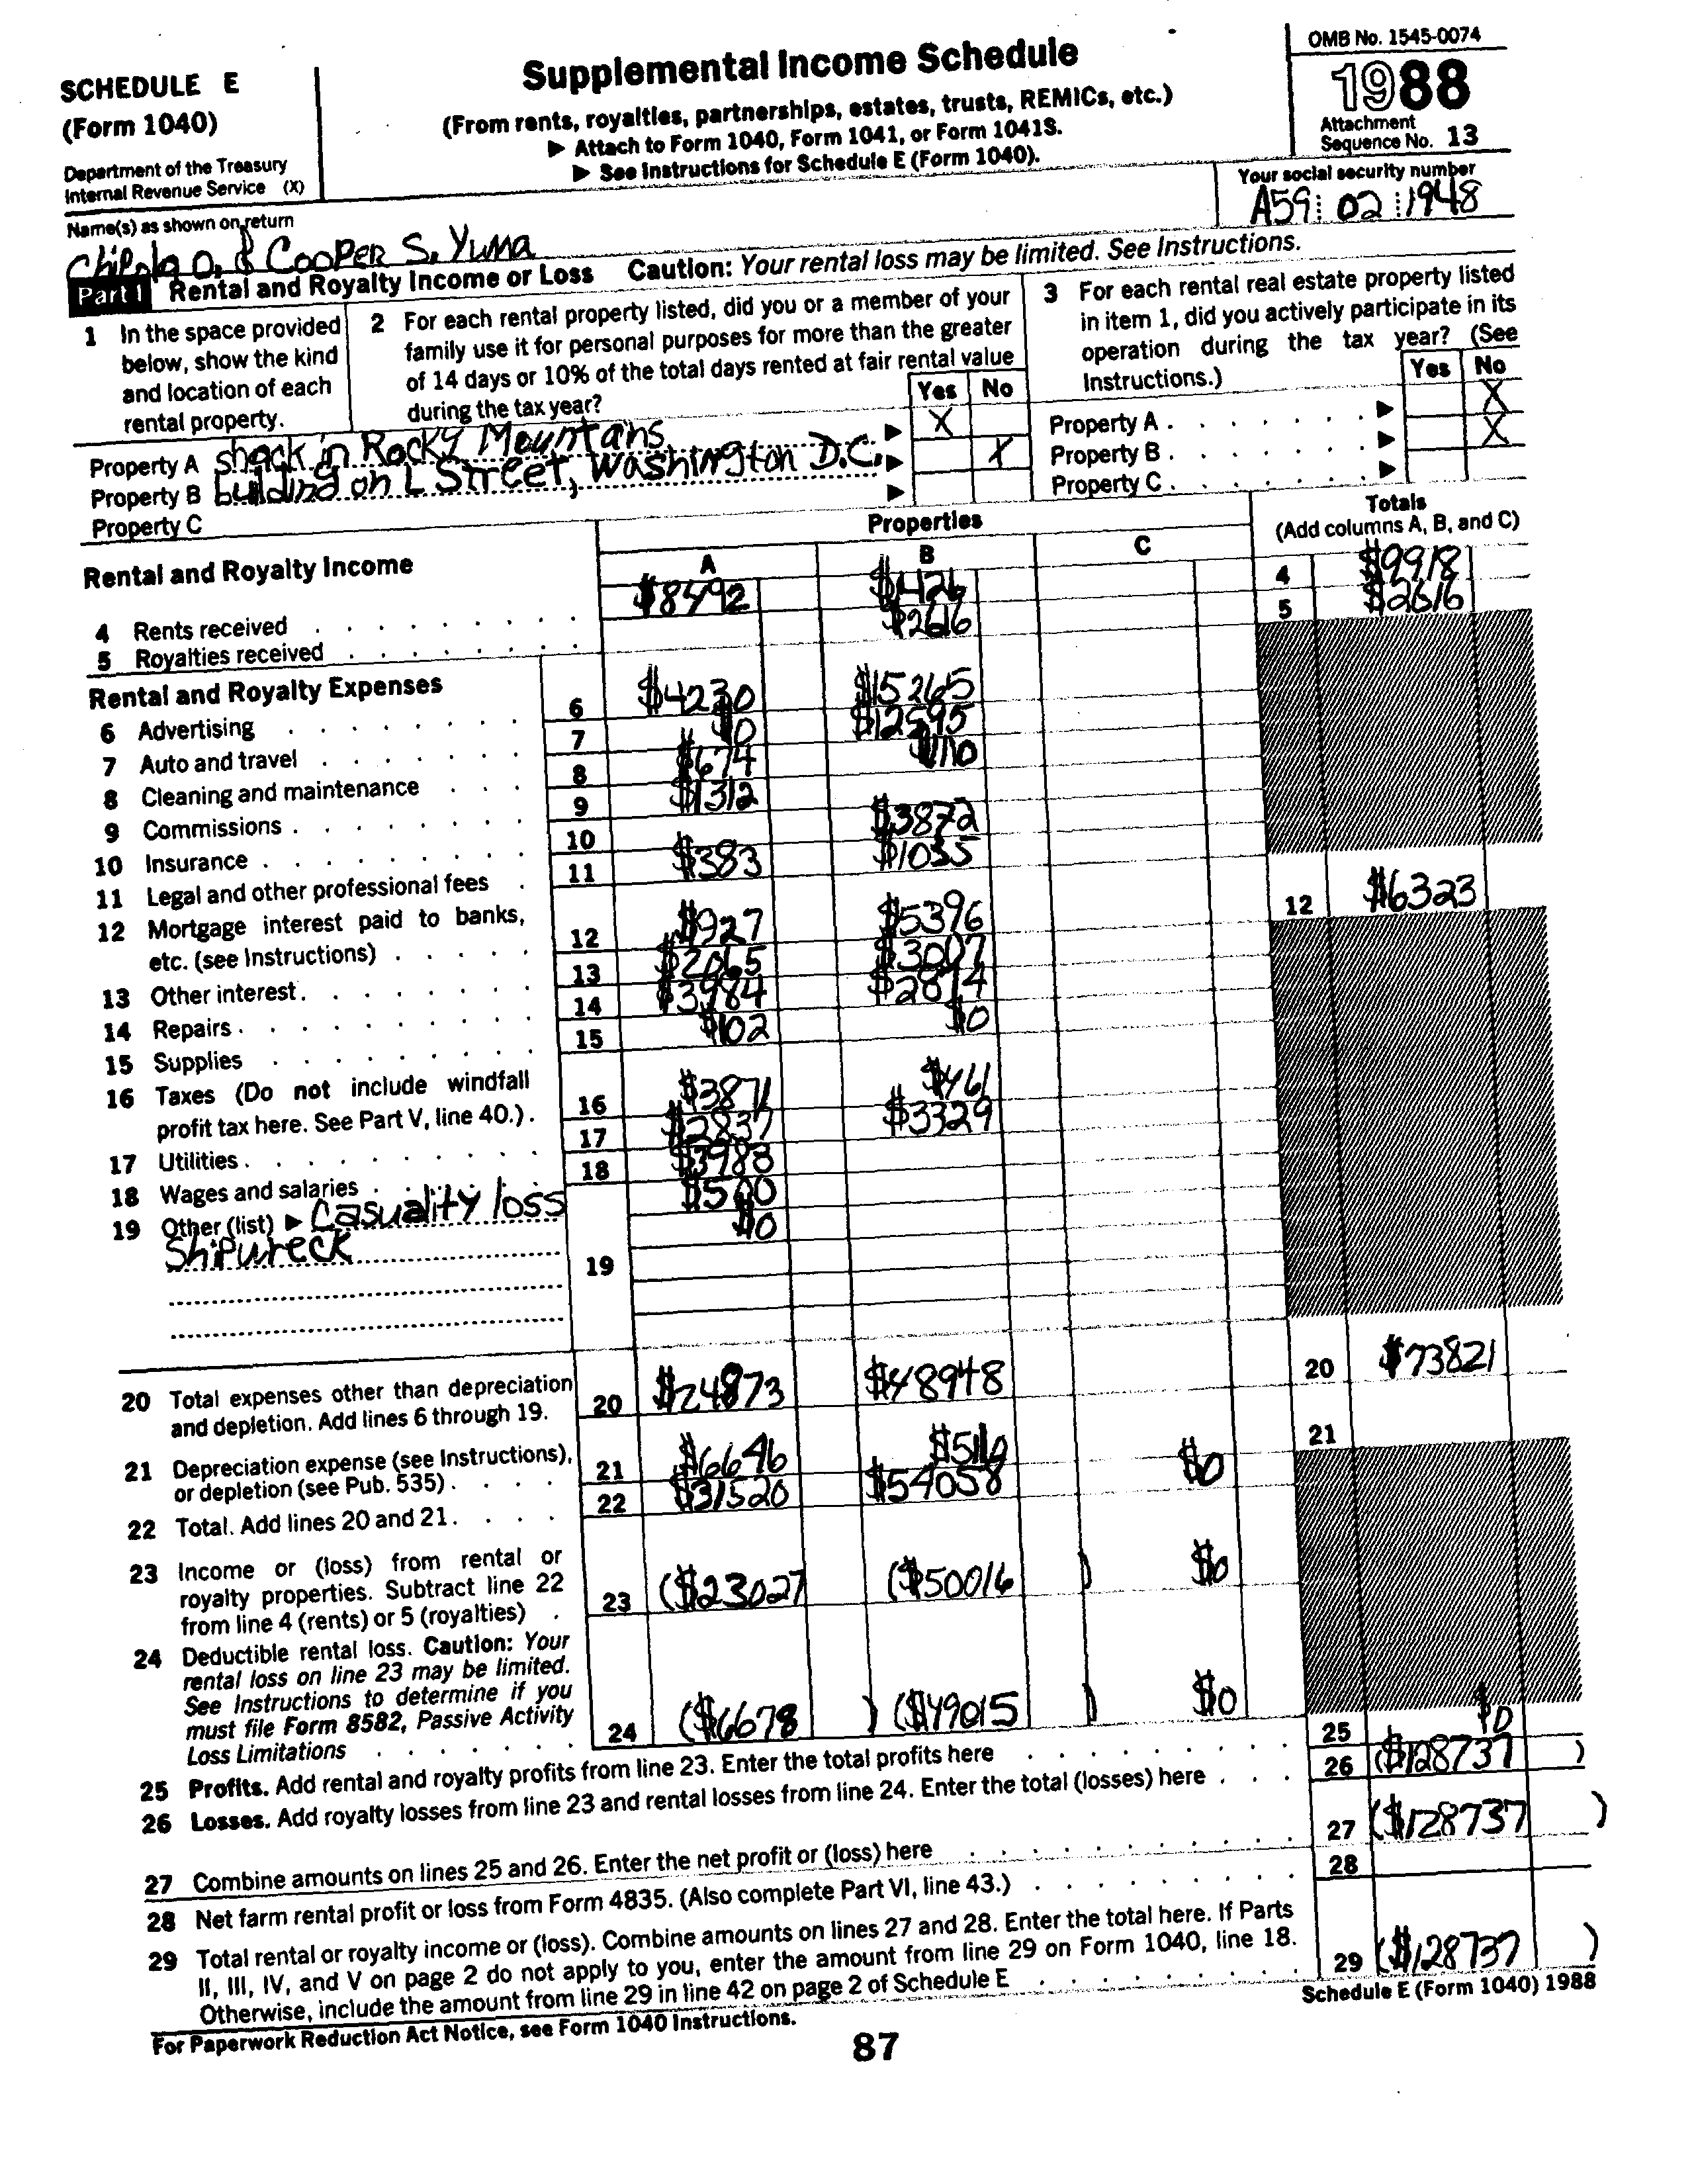 SCHEDULE E
(Form 1040)
Department of the Treasury
Internal Revenue Service (X)
Supplemental Income Schedule
(From rents, royalties, partnerships, estates, trusts, REMICs, etc.)
▶ Attach to Form 1040, Form 1041, or Form 1041S.
▶ See Instructions for Schedule E (Form 1040).
OMB No. 1545-0074
1988
Attachment
Sequence No. 13
Name(s) as shown on return
Chipola O. & Cooper S. Yuma
Your social security number
A59 02 1948
Part I Rental and Royalty Income or Loss Caution: Your rental loss may be limited. See Instructions.
1 In the space provided
below, show the kind
and location of each
rental property.
2 For each rental property listed, did you or a member of your
family use it for personal purposes for more than the greater
of 14 days or 10% of the total days rented at fair rental value
during the tax year?
Yes No
3 For each rental real estate property listed
in item 1, did you actively participate in its
operation during the tax year? (See
Instructions.)
Yes No
Property A shack in Rocky Mountans ▶ X
Property B building on L Street, Washington D.C. ▶ X
Property C ▶
Property A ▶ X
Property B ▶ X
Property C ▶
Rental and Royalty Income
Properties
A B C
Totals
(Add columns A, B, and C)
4 Rents received $8492 $1426 4 $9918
5 Royalties received $2616 5 $2616
Rental and Royalty Expenses
6 Advertising 6 $4230 $15265
7 Auto and travel 7 $0 $12595
8 Cleaning and maintenance 8 $674 $1110
9 Commissions 9 $1312
10 Insurance 10 $3872
11 Legal and other professional fees 11 $383 $1035
12 Mortgage interest paid to banks,
etc. (see Instructions) 12 $927 $5396 12 $6323
13 Other interest 13 $2065 $3007
14 Repairs 14 $3984 $2874
15 Supplies 15 $102 $0
16 Taxes (Do not include windfall
profit tax here. See Part V, line 40.) 16 $3871 $461
17 Utilities 17 $2837 $3329
18 Wages and salaries 18 $3983
19 Other (list) ▶ Casuality loss $500
Shipwreck $0
19
20 Total expenses other than depreciation
and depletion. Add lines 6 through 19. 20 $24873 $48948 20 $73821
21 Depreciation expense (see Instructions),
or depletion (see Pub. 535) 21 $6646 $5110 $0 21
22 Total. Add lines 20 and 21 22 $31520 $54058
23 Income or (loss) from rental or
royalty properties. Subtract line 22
from line 4 (rents) or 5 (royalties) 23 ($23027 ($50016 ) $0
24 Deductible rental loss. Caution: Your
rental loss on line 23 may be limited.
See Instructions to determine if you
must file Form 8582, Passive Activity
Loss Limitations 24 ($6678 ) ($49015 ) $0
25 Profits. Add rental and royalty profits from line 23. Enter the total profits here 25 $0
26 Losses. Add royalty losses from line 23 and rental losses from line 24. Enter the total (losses) here 26 ($128737 )
27 Combine amounts on lines 25 and 26. Enter the net profit or (loss) here 27 ($128737 )
28 Net farm rental profit or loss from Form 4835. (Also complete Part VI, line 43.) 28
29 Total rental or royalty income or (loss). Combine amounts on lines 27 and 28. Enter the total here. If Parts
II, III, IV, and V on page 2 do not apply to you, enter the amount from line 29 on Form 1040, line 18.
Otherwise, include the amount from line 29 in line 42 on page 2 of Schedule E 29 ($128737 )
For Paperwork Reduction Act Notice, see Form 1040 Instructions.
Schedule E (Form 1040) 1988
87